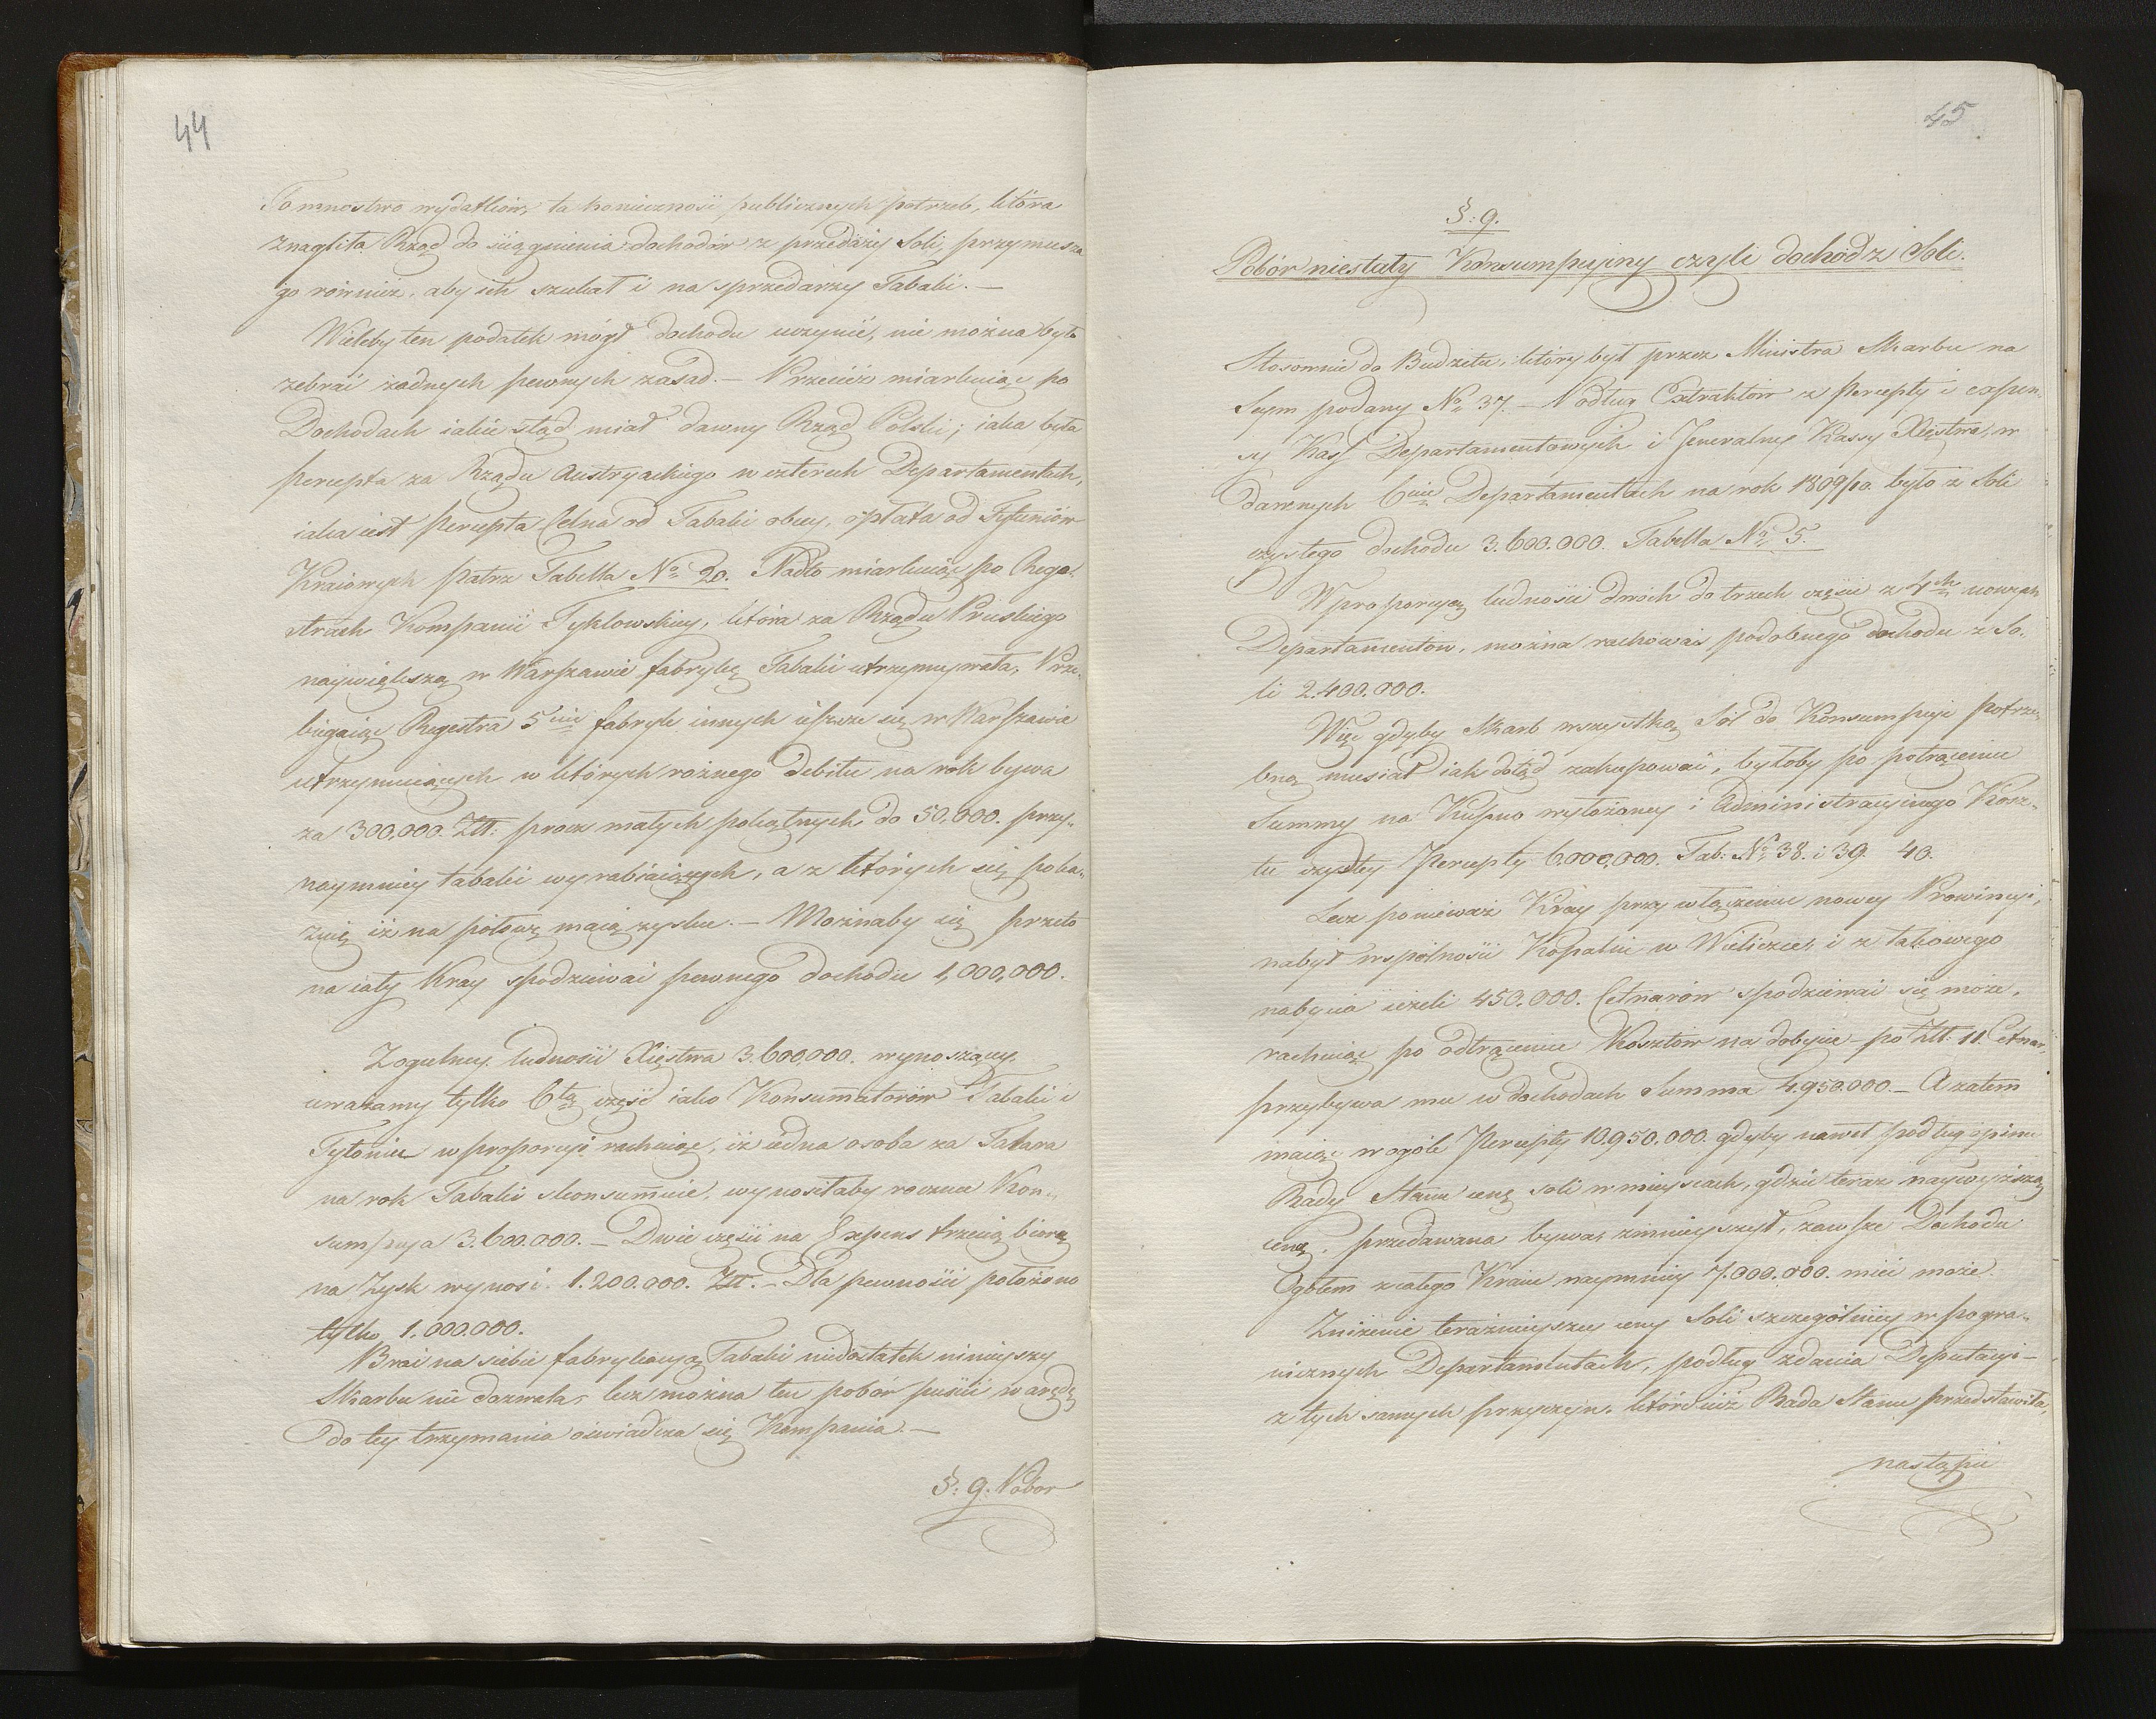 44
To mnostwo wydatków, ta konieczność publicznych potrzeb, która
znagliła Rząd do sciągnienia dochodów z przedaży Soli, przymusza
go rownież, aby ich szukał i na sprzedarzy Tabaki. —
Wieleby ten podatek mógł dochodu uczynić, nie można było
zebrać żadnych pewnych zasad. — Przecież miarkuiąc po
Dochodach iakie ztąd miał dawny Rząd Polski; iaka była
percepta za Rządu Austryackiego w czterech Departamentach,
iaka iest Percepta Celna od Tabaki obcey, opłata od Tytuniów
Kraiowych patrz Tabella No 20. Nadto miarkuiąc po Rege-
strach Kompanii Tyklowskiey, która za Rządu Pruskiego
naywiększą w Warszawie fabrykę Tabaki utrzymywała, Prze-
biegaiąc Regestra 5ciu fabryk innych ieszcze się w Warszawie
utrzymuiących w których rożnego debitu na rok bywa
za 300,000. Złł: procz małych pokątnych do 50,000. przy-
naymniey tabaki wyrabiaiących, a z których się poka-
zuie iż na połowę maią zysku. — Możnaby się przeto
na cały Kray spodziewać pewnego dochodu 1,000,000.
Zogulney ludności Xięstwa 3.600,000. wynoszącey
uważamy tylko 6tą część iako Konsumatorów Tabaki i
Tytoniu w proporcyi rachuiąc, iż iedna osoba za Talara
na rok Tabaki skonsumuie, wynosiłaby roczna Kon-
sumpcya 3.600.000. — Dwie części na Expens trzecią biorą
na Zysk wynosi 1.200.000. Złł. — Dla pewności położono
tylko 1.000.000.
Brać na siebie fabrykacyą Tabaki niedostatek ninieyszy
Skarbu nie dozwala, lecz można ten pobór puścić w arędę
do tey trzymania oświadcza się Kompania. —
§: 9. Pobor
45
§: 9.
Pobór niestały Konsumpcyiny czyli dochód z Soli.
Stosownie do Budżetu, który był przez Ministra Skarbu na
Seym podany No 37. — Podług Extraktów z Percepty i expen-
sy Kass Departamentowych i Jeneralney Kassy Xięstwa, w
dawnych 6ciu Departamentach na rok 1809/10. było z Soli
czystego dochodu 3.600.000. Tabella No 5.
W proporcyą ludności dwóch do trzech części z 4ch nowych
Departamentów, można rachować podobnego dochodu z So-
li 2.400.000.
Więc gdyby Skarb wszystką Sól do Konsumpcyi potrze-
bną musiał iak dotąd zakupować, byłoby po potrąceniu
Summy na Kupno wyłożoney i Administracyinego Kosz-
tu czystey Percepty 6.000,000. Tab: No 38. i 39. 40.
Lecz ponieważ Kray przy włączeniu nowey Prowincyi,
nabył wspólności Kopalni w Wieliczce, i z takowego
nabycia ieżeli 450.000. Cetnarów spodziewać się może,
rachuiąc po odtrąceniu Kosztów na dobycie — po Złł. 11. Cetnar,
przybywa mu w dochodach Summa 4.950.000. — A zatem
maiąc w ogóle Percepty 10.950.000. gdyby nawet podług opinii
Rady Stanu cenę soli w mieyscach, gdzie teraz naywyższą
ceną, przedawana bywa, zmnieyszył, zawsze Dochodu
Ogółem z całego Kraiu naymniey 7.000.000. mieć może
Zniżenie teraźnieyszey ceny Soli szczególniey w pogra-
nicznych Departamentach, podług zdania Deputacyi —
z tych samych przyczyn, które iuż Rada Stanu przedstawiła,
nastąpić